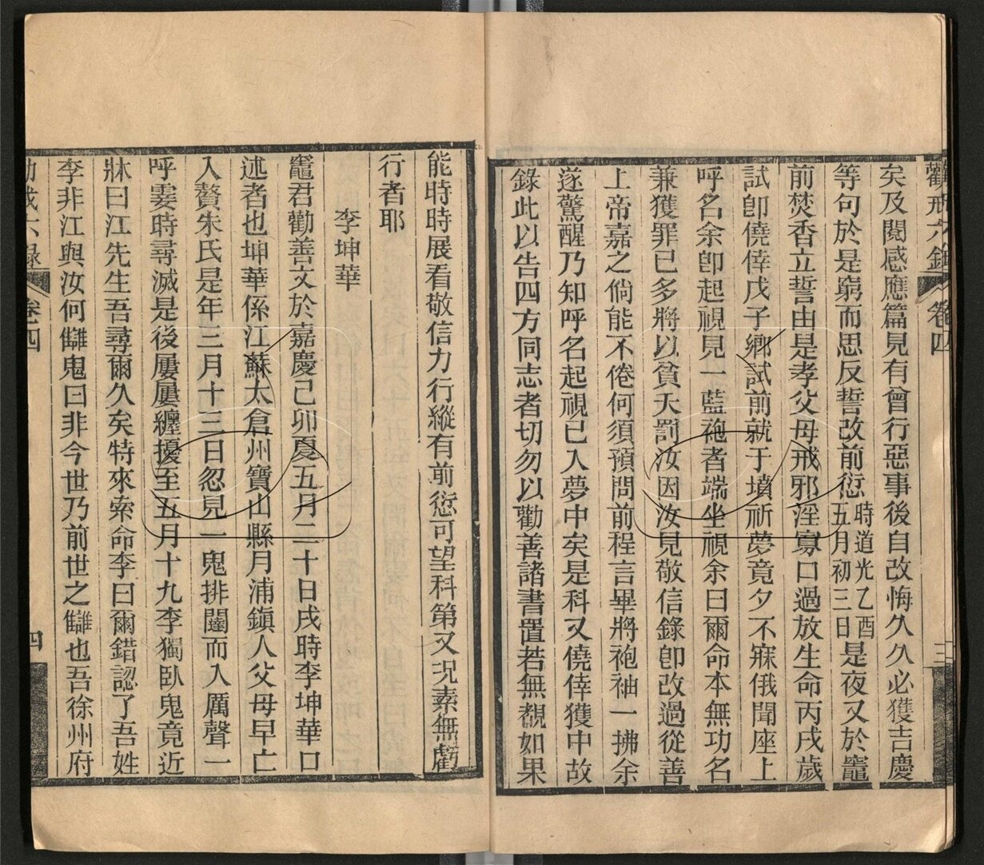 勸戒六錄
卷四
三
矣及閱感應篇見有曾行惡事後自改悔久久必獲吉慶
等句於是窮而思反誓改前愆時道光乙酉五月初三日是夜又於竈
前焚香立誓由是孝父母戒邪淫寡口過放生命丙戌歲
試卽僥倖戊子鄉試前就于墳祈夢竟夕不寐俄聞座上
呼名余卽起視見一藍袍者端坐視余曰爾命本無功名
兼獲罪已多將以貧夭罰汝因汝見敬信錄卽改過從善
上帝嘉之倘能不倦何須預問前程言畢將袍袖一拂余
遂驚醒乃知呼名起視已入夢中矣是科又僥倖獲中故
錄此以告四方同志者切勿以勸善諸書置若無覩如果
能時時展看敬信力行縱有前愆可望科第又況素無虧
行者耶
李坤華
竈君勸善文於嘉慶己卯夏五月二十日戌時李坤華口
述者也坤華係江蘇太倉州寶山縣月浦鎭人父母早亡
入贅朱氏是年三月十三日忽見一鬼排闥而入厲聲一
呼霎時尋滅是後屢屢纏擾至五月十九李獨臥鬼竟近
牀曰江先生吾尋爾久矣特來索命李曰爾錯認了吾姓
李非江與汝何讎鬼曰非今世乃前世之讎也吾徐州府
勸戒六錄
卷四
四